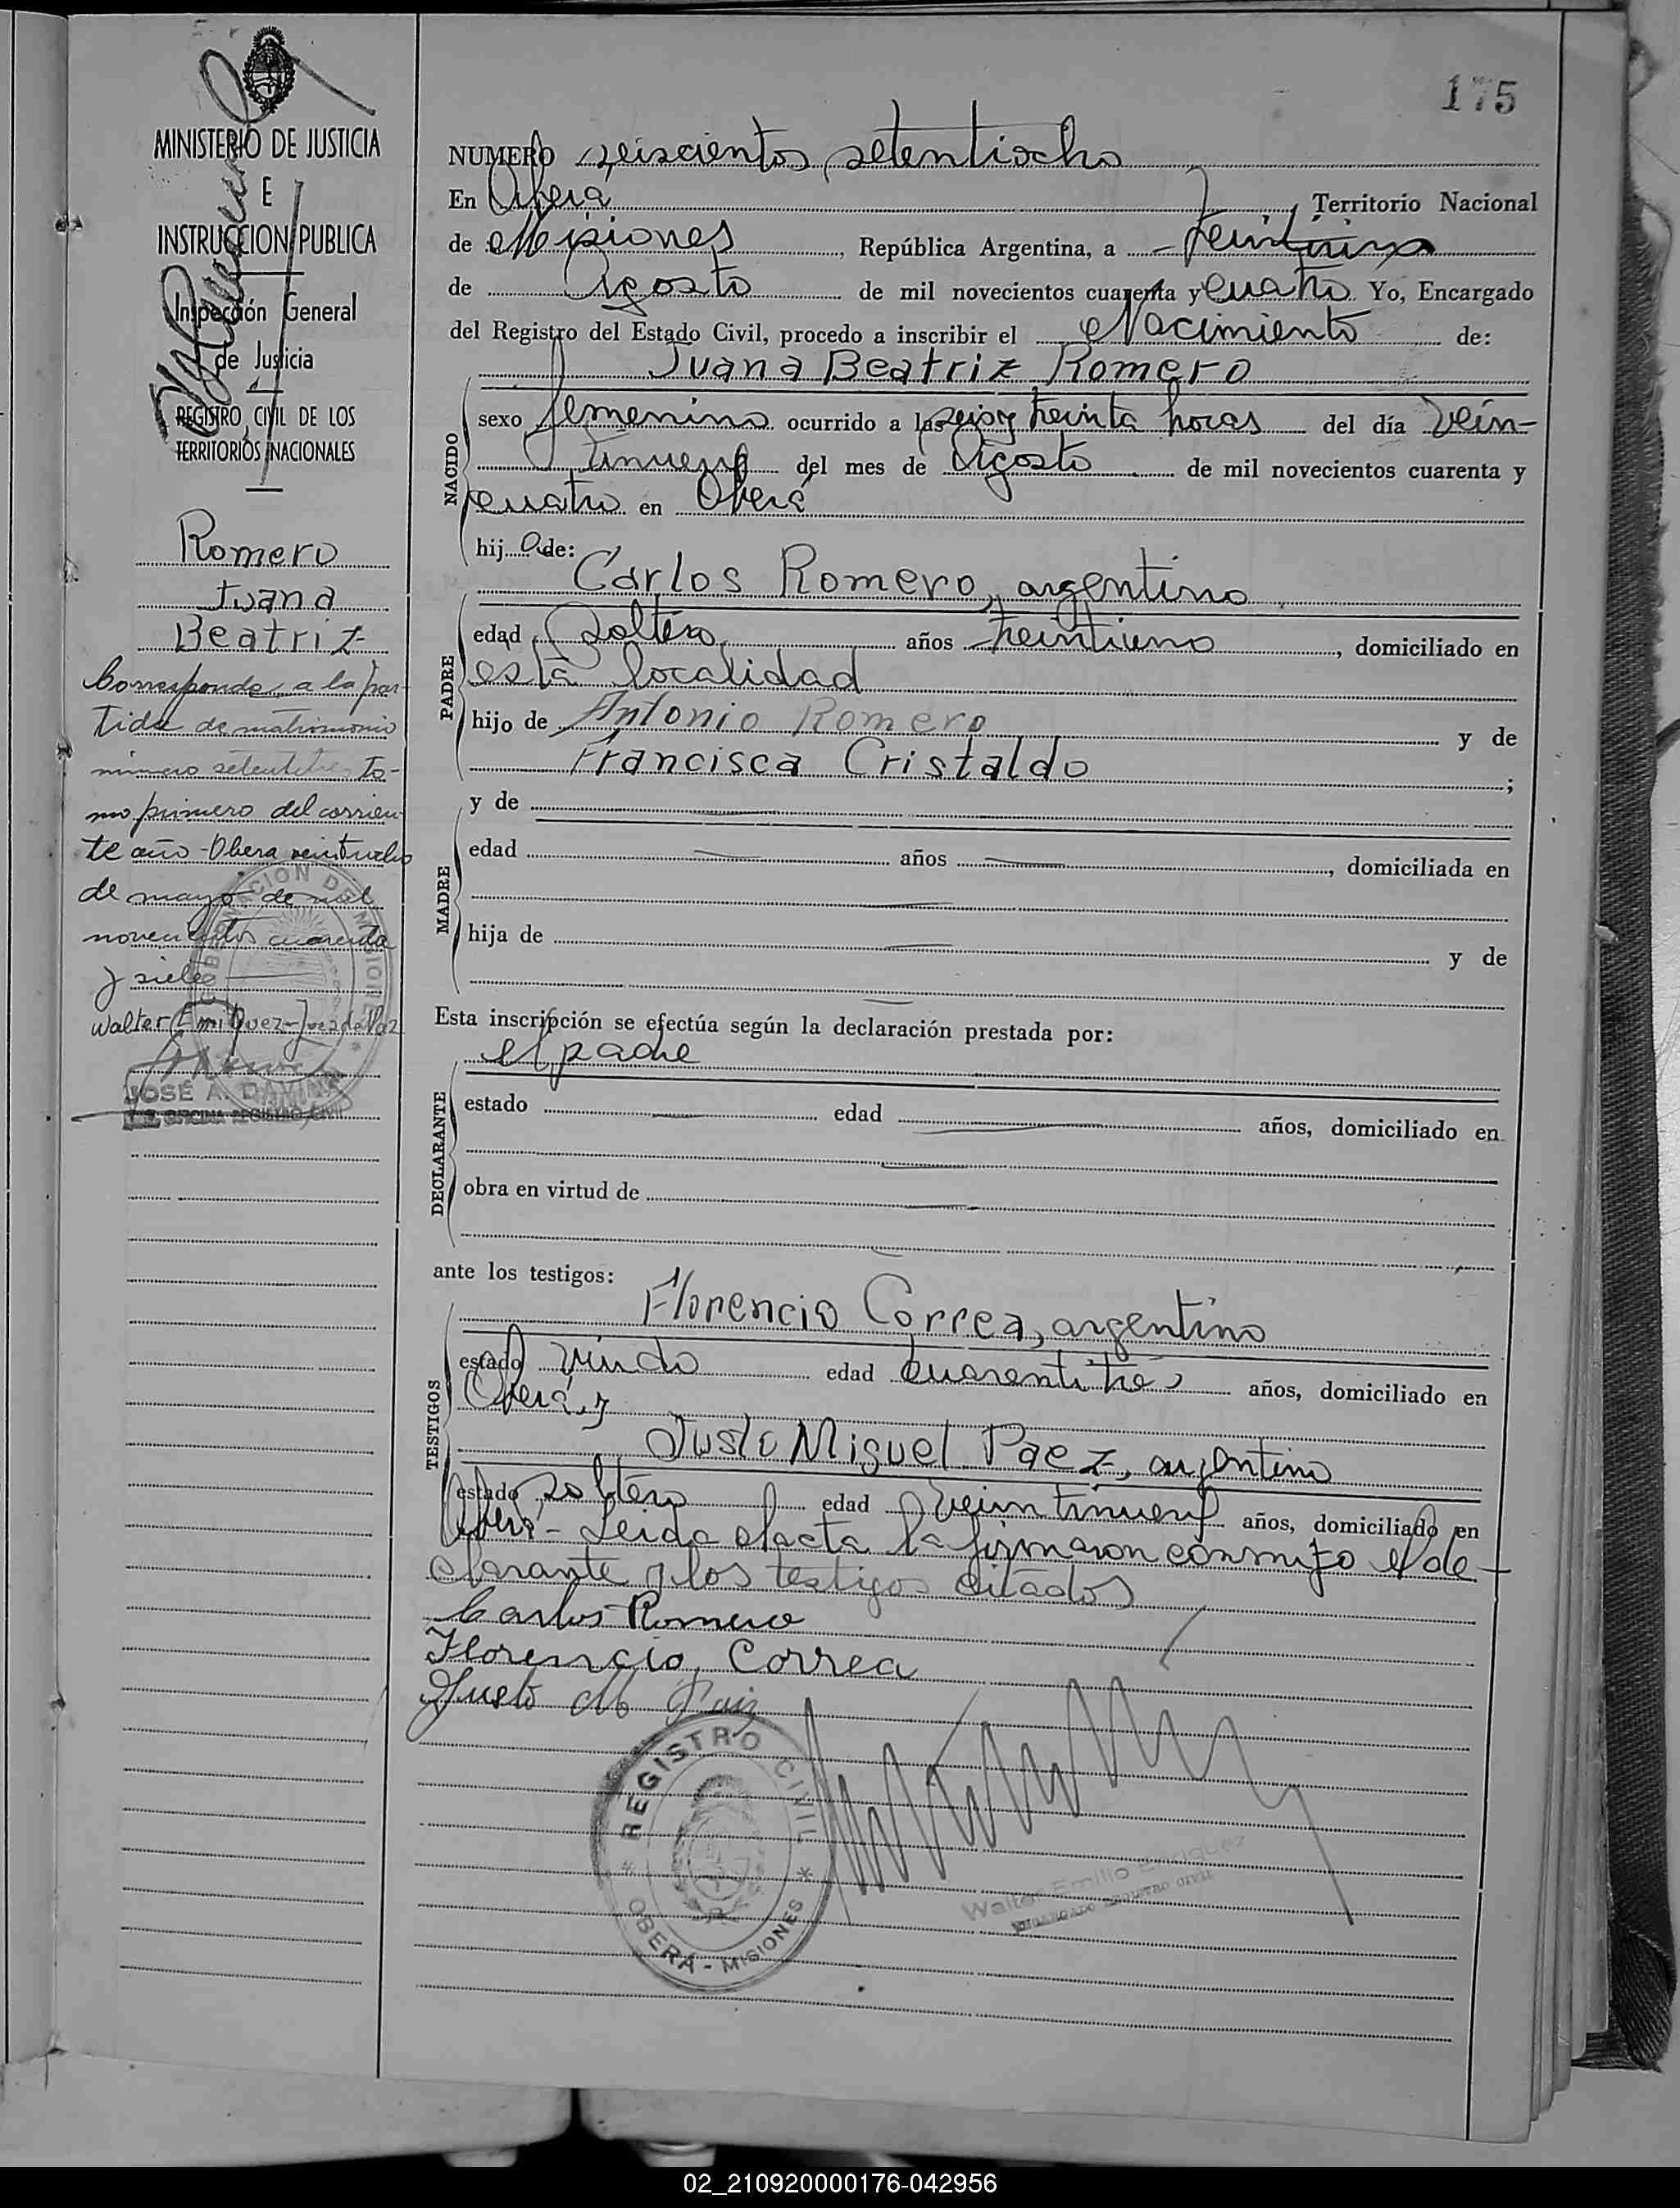 175
MINISTERIO DE JUSTICIA
E
INSTRUCCION PUBLICA
Inspección General
de Justicia
REGISTRO CIVIL DE LOS
TERRITORIOS NACIONALES
Romero
Juana
Beatriz
Corresponde a la par-
tida de matrimonio
número setentitres To-
mo primero del corrien-
te año - Oberá veintiocho
de mayo de mil
novecientos cuarenta
y siete
Walter Emi Quez - Juez de Paz
JOSÉ A. DAMINA
OFICINA REGISTRO CIVIL
GOBERNACION DE MISIONES
NUMERO seiscientos setentiocho
En Oberá, Territorio Nacional
de Misiones, República Argentina, a treintiuno
de Agosto de mil novecientos cuarenta y cuatro Yo, Encargado
del Registro del Estado Civil, procedo a inscribir el Nacimiento de:
Juana Beatriz Romero
NACIDO
sexo femenino ocurrido a las seis y treinta horas del día vein-
tinueve del mes de Agosto de mil novecientos cuarenta y
cuatro en Oberá
hij a de:
Carlos Romero, argentino
PADRE
edad soltero años treintiuno, domiciliado en
esta localidad
hijo de Antonio Romero y de
Francisca Cristaldo;
y de
MADRE
edad años, domiciliada en
hija de y de
Esta inscripción se efectúa según la declaración prestada por:
el padre
DECLARANTE
estado edad años, domiciliado en
obra en virtud de
ante los testigos:
Florencio Correa, argentino
TESTIGOS
estado viudo edad cuarentitres años, domiciliado en
Oberá y
Justo Miguel Paez, argentino
estado soltero edad veintinueve años, domiciliado en
Oberá - Leida el acta la firmaron conmigo el de-
clarante y los testigos citados
Carlos Romero
Florencio Correa
Justo M Paiz
REGISTRO CIVIL
OBERÁ - MISIONES
Walter Emilio Enriquez
ENCARGADO REGISTRO CIVIL
02_210920000176-042956